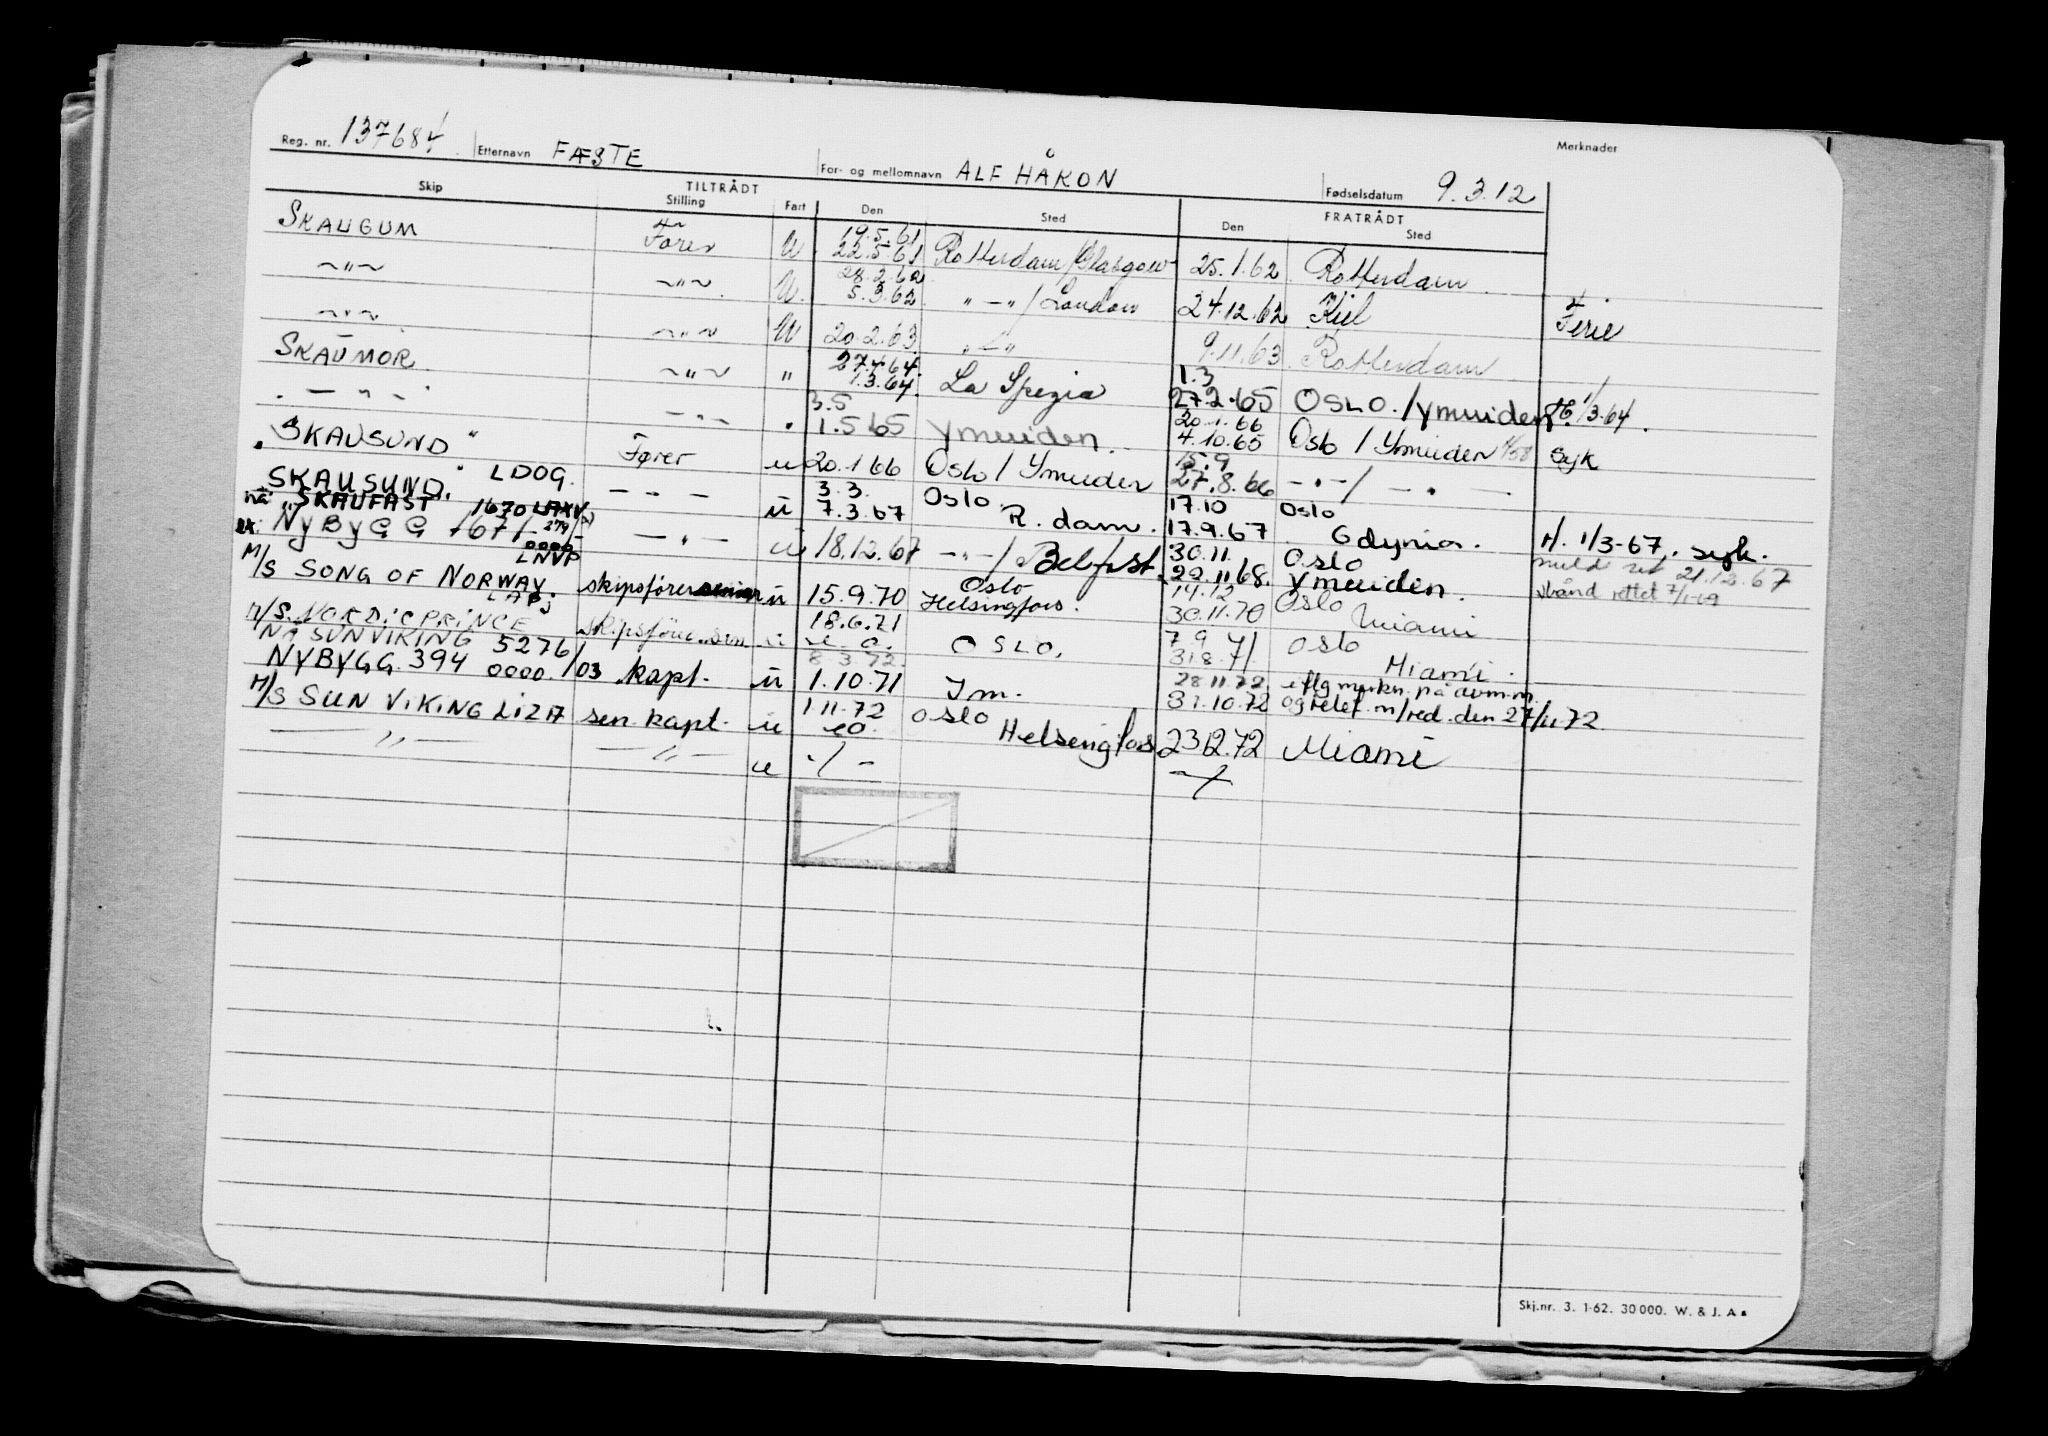 Reg. nr. 137684 Etternavn FÆSTE For- og mellomnavn ALF HÅKON Fødselsdatum 9.3.12 Merknader
Skip TILTRÅDT Stilling Fart Den Sted FRATRÅDT Den Sted
SKAUGUM Fører U 19.5.61 22.5.61 Rotterdam/Glasgow 25.1.62 Rotterdam
~"~ ~"~ U. 28.2.62 5.3.62 "-"/London 24.12.62 Kiel Ferie
~"~ ~"~ U 20.2.63 "-" 9.11.63 Rotterdam
SKAUMOR ~"~ " 27.4.64. 1.3.64. La Spezia 1.3 27.2.65 OSLO./Ymuiden 1/3.64.
- " - - " - 3.5 1.5 65 Ymuiden 20.1.66 4.10.65 Oslo / Ymuiden Syk
"SKAUSUND" LDOG. Fører u 20.1 66 Oslo / Ymuiden 15.9 27.8.66 - " - / - " -
SKAUSUND. - - - u 3.3. 7.3.67 Oslo R.dam. 17.10 17.9.67 Oslo Gdynia. H. 1/3-67, syk.
nå "SKAUFAST 1670 LAXV
ex. NYBYGG 1671 0000 LNVP - " - u 18.12.67 - " - / Belfast 30.11. 20.11 68. Oslo Ymuiden. 21.12.67
rettet
M/S SONG OF NORWAY. skipsfører senior u 15.9.70 Oslo Helsingfors. 14.12 30.11.70 Oslo Miami
M/S. NORDIC PRINCE
NÅ SUN VIKING 5276 u 18.6.71 u. o. OSLO. 7 9 31.8.71. Oslo Miami.
NYBYGG. 394 0000./03 kapt. u 8.3.72. 1.10.71 Im. 28 11.72 31.10.72 iflg merkn. på avm.m. og telef. m/red. den 27/11 72.
M/S SUN VIKING LIZA sen. kapt. u 1 11.72 eo. Oslo Helsingfors 23 12.72 Miami
- " - - " - u -/-
Skj.nr. 3. 1-62. 30 000. W. & J. A s